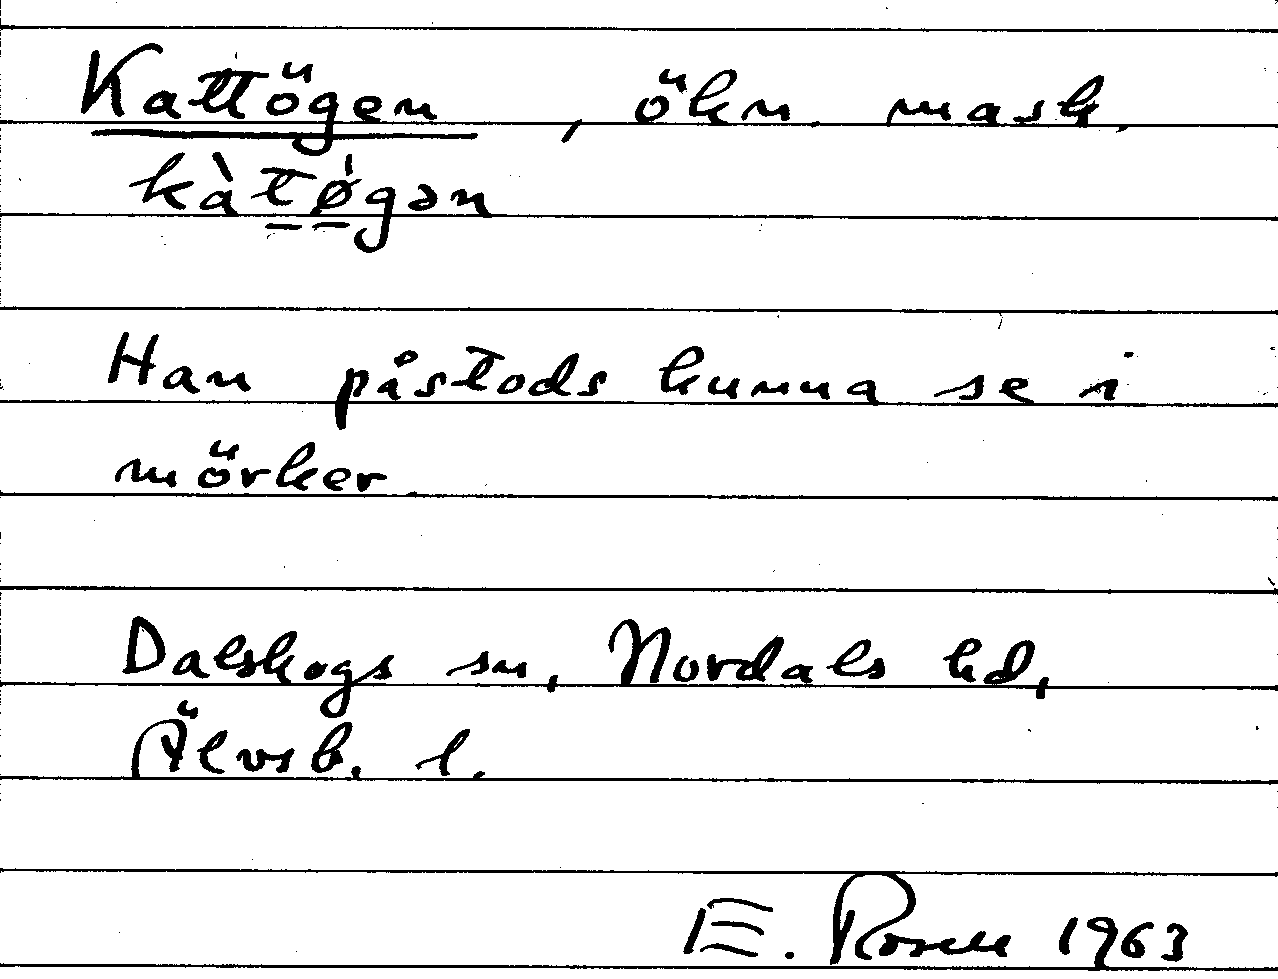 Kattögen, ökn. mask.
kàt̲ǿ̲gən
Han påstods kunna se i
mörker
Dalskogs sn, Nordals hd,
Älvsb. l.
E. Rosen 1963